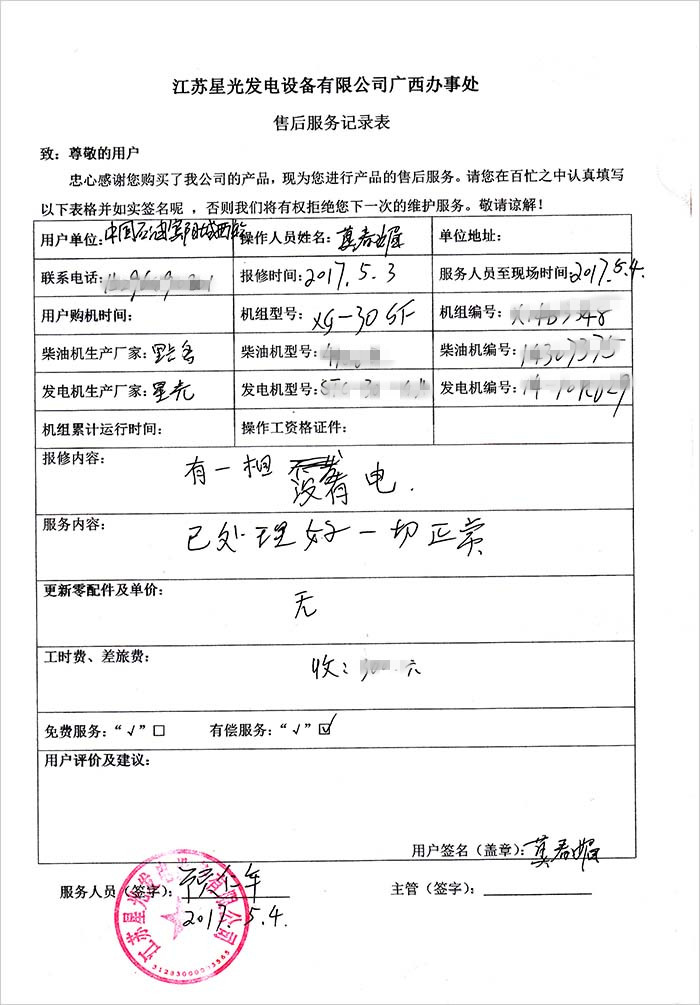 江苏星光发电设备有限公司广西办事处
售后服务记录表
致：尊敬的用户
忠心感谢您购买了我公司的产品，现为您进行产品的售后服务。请您在百忙之中认真填写
以下表格并如实签名呢，否则我们将有权拒绝您下一次的维护服务。敬请谅解！
用户单位：中国石油宾阳城西站 操作人员姓名：莫春媚 单位地址：
联系电话： 报修时间：2017.5.3 服务人员至现场时间：2017.5.4.
用户购机时间： 机组型号：XG-30GF 机组编号：
柴油机生产厂家： 柴油机型号： 柴油机编号：
发电机生产厂家：星光 发电机型号： 发电机编号：
机组累计运行时间： 操作工资格证件：
报修内容： 有一相没有电.
服务内容： 已处理好一切正常
更新零配件及单价： 无
工时费、差旅费： 收： 元
免费服务：“√”□ 有偿服务：“√”☑
用户评价及建议：
用户签名（盖章）：莫春媚
服务人员（签字）： 主管（签字）：
2017.5.4.
江苏星光发电设备有限公司